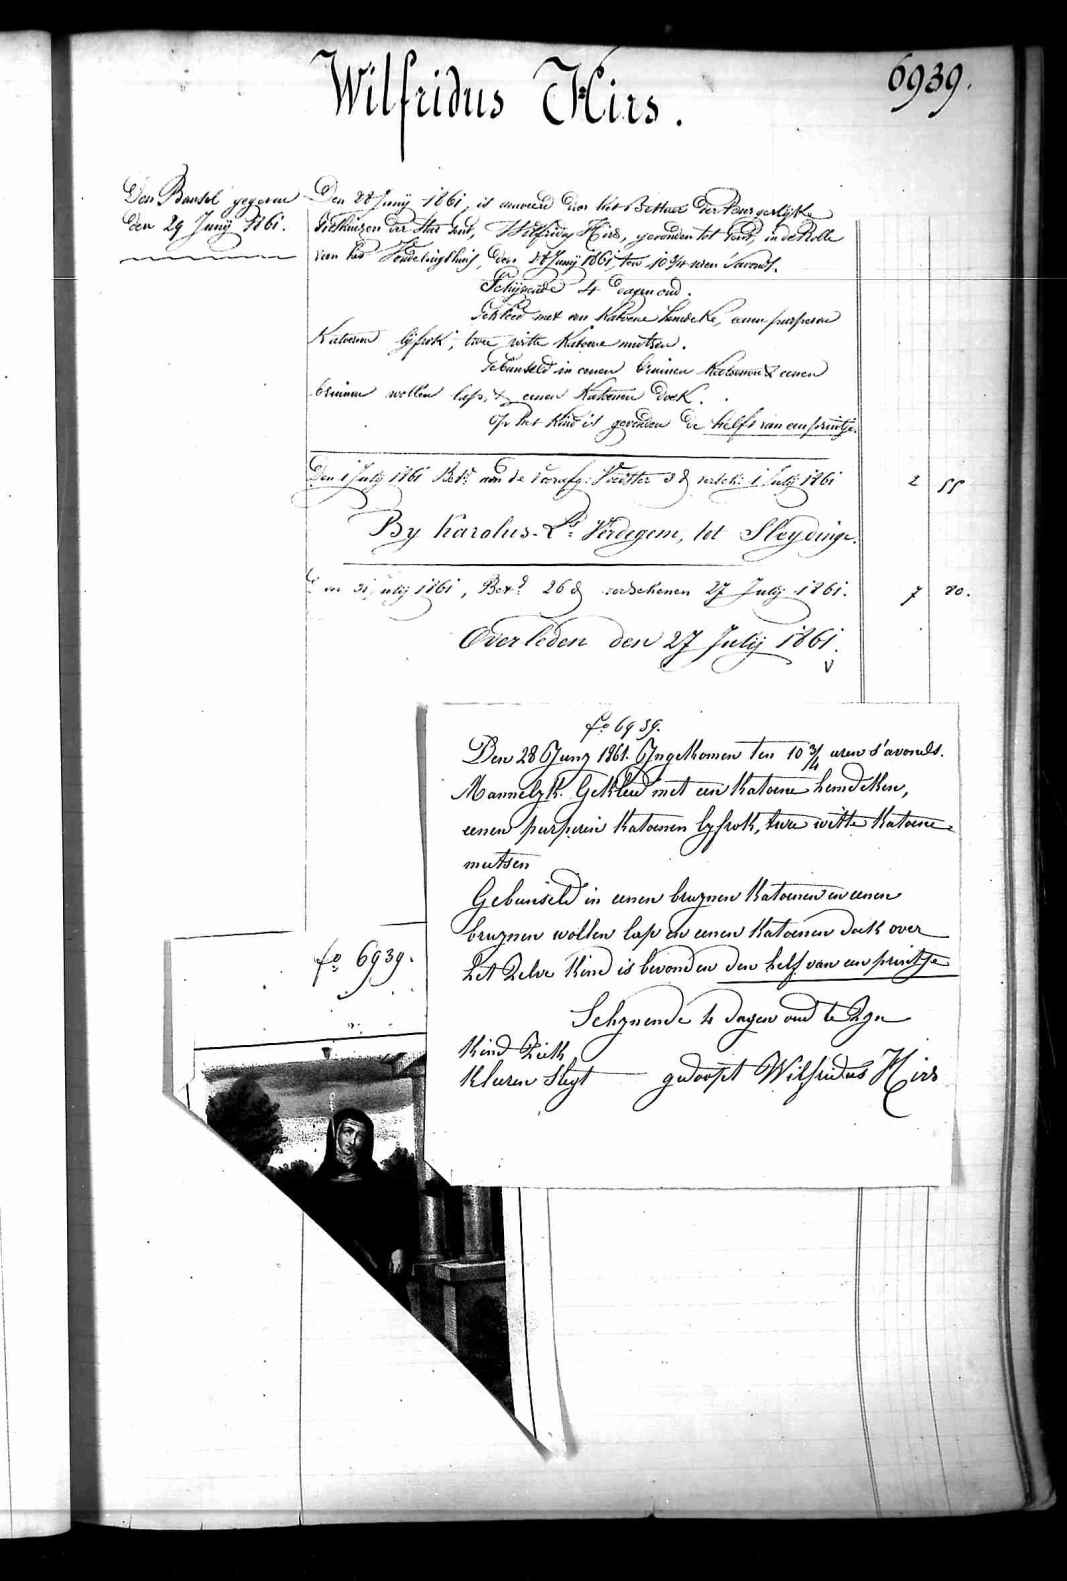 Wilfridus Hirs.
6939.
Den Bunsel gegeven
den 29 Junij 1861.
Den 28 Junij 1861, is aanveerd door het Bestuur der Burgerlijke
Godshuizen der Stad Gent, Wilfridus Hirs, gevonden tot Gent, in de Rolle
van het Vondelingshuis, den 28 Junij 1861, ten 10 3/4 uren 's avonds.
Schijnende 4 dagen oud.
Gekleed met een Katoene hemdeke, eenen purperen
Katoenen lijfrok, twee witte Katoene mutsen.
Gebunseld in eenen bruinen Katoenen & eenen
bruinen wollen lap, & eenen Katoenen doek.
Op het Kind is gevonden de helft van een printje.
Den 1 July 1861 Bet. aan de Voedster 1 July 1861
2 55
By Karolus-Ls Verdegem, tot Sleydinge.
Den 31 July 1861, Bet. 26 d verschenen 27 July 1861.
7 80.
Overleden den 27 July 1861.
fo 6939.
Den 28 Juny 1861. Ingekomen ten 10 3/4 uren s'avonds.
Mannelyk. Gekleed met een Katoene hemdeken,
eenen purperen Katoenen lyfrok, twee witte Katoene
mutsen
Gebunseld in eenen bruynen Katoenen en eenen
bruynen wollen lap en eenen Katoenen doek over
het Zelve Kind is bevonden den helf van een printje
Schynende 4 dagen oud te Zyn
Kind Ziek
Kleeren Slegt gedoopt Wilfridus Hirs
fo 6939.